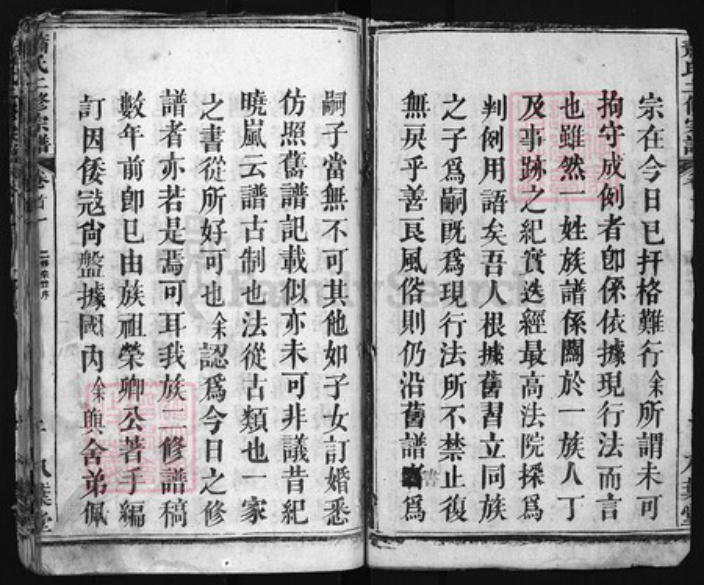 宗在今日已扞格難行余所謂未可
拘守成例者卽係依據現行法而言
也雖然一姓族譜係關於一族人丁
及事跡之紀實迭經最高法院採爲
判例用語矣吾人根據舊習立同族
之子爲嗣旣爲現行法所不禁止復
無戾乎善良風俗則仍沿舊譜書
嗣子當無不可其他如子女訂婚悉
仿照舊譜記載似亦未可非議昔紀
曉嵐云譜古制也法從古類也一家
之書從所好可也余認爲今日之修
譜者亦若是焉可耳我族二修譜稿
數年前卽已由族祖榮卿公著手編
訂因倭寇尙盤據國內余與舍弟佩
蕭氏二修宗譜 卷首一 二修宗譜序 八葉堂
FamilySearch